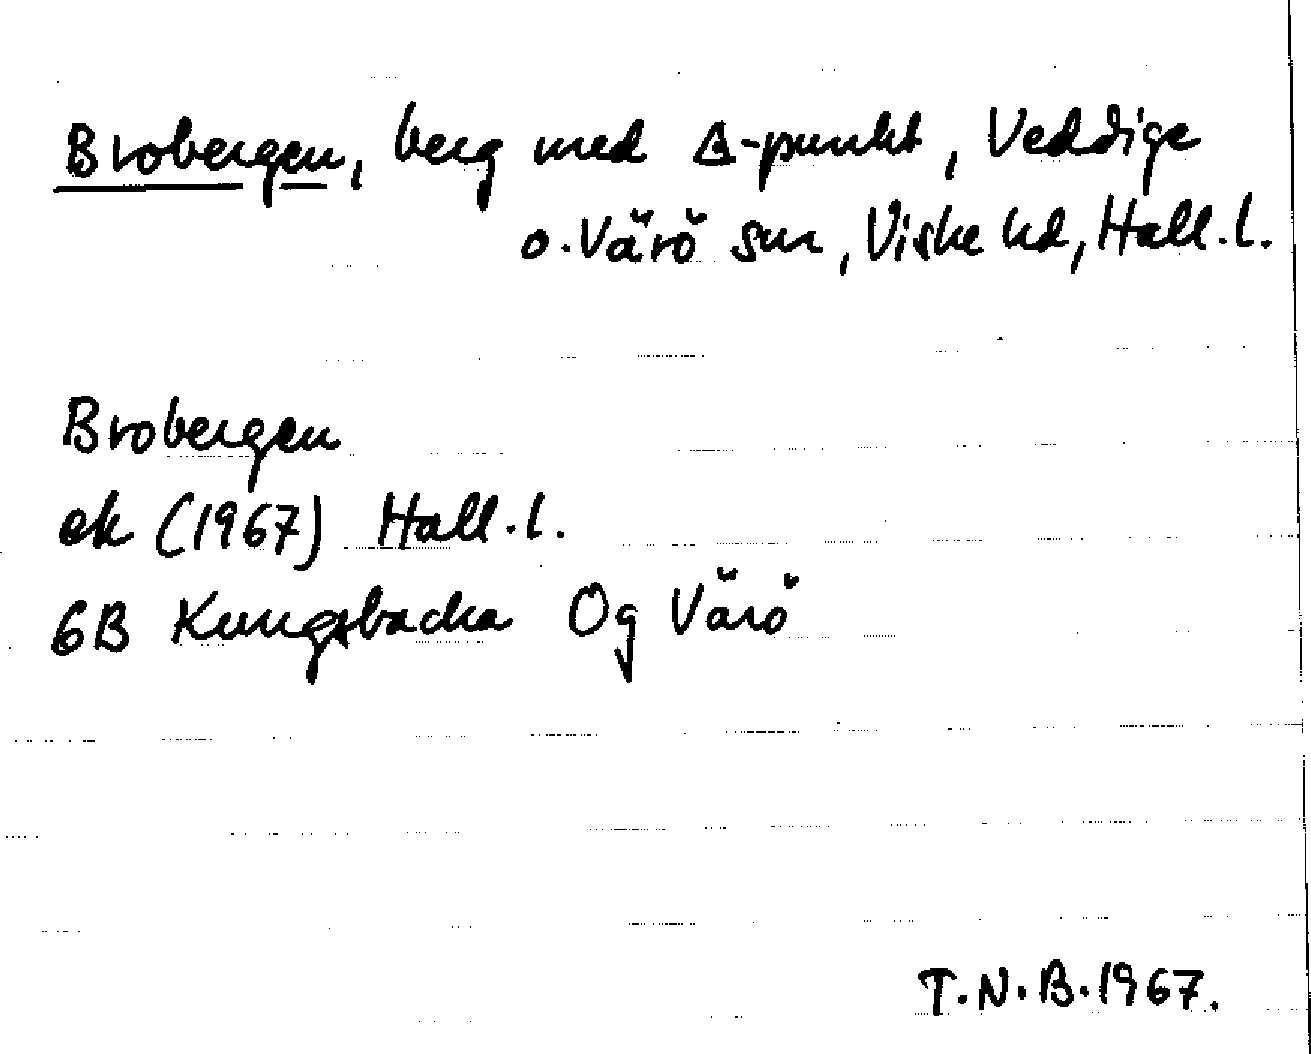 Brobergen, berg med Δ-punkt, Veddige
o. Värö snr, Viske hd, Hall. l.
Brobergen
ek (1967) Hall. l.
6B Kungsbacka 0g Värö
T.N.B. 1967.